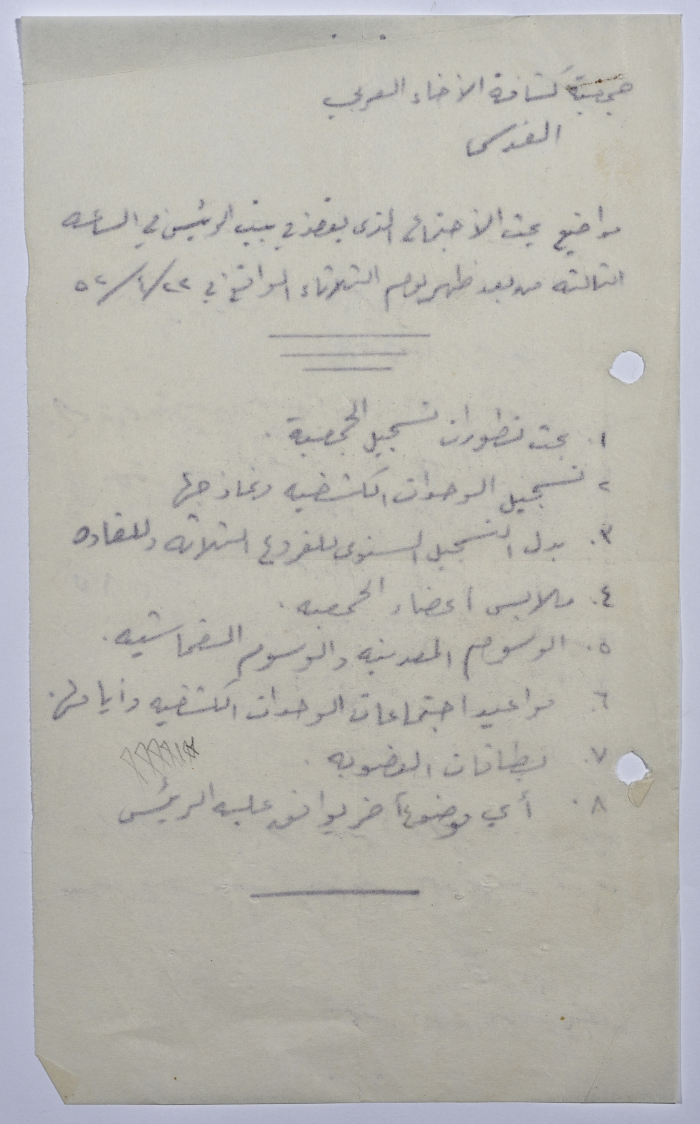 جمعية كشافة الاخاء العربي
القدس
مواضيع بحث الاجتماع الذي يعقد في بيت الرئيس في الساعه
الثالثه من بعد ظهر يوم الثلاثاء الواقع في ٢٢/١/٥٢
١. بحث تطورات تسجيل الجمعية.
٢ تسجيل الوحدات الكشفيه ونماذجها
٣. بدل التسجيل السنوي للفروع الثلاثه وللقاده
٤. ملابس اعضاء الجمعيه.
٥. الوسوم المعدنيه والوسوم القماشيه.
٦. مواعيد اجتماعات الوحدات الكشفيه وأيامها.
٧. بطاقات العضويه.
٨. أي موضوع آخر يوافق عليه الرئيس